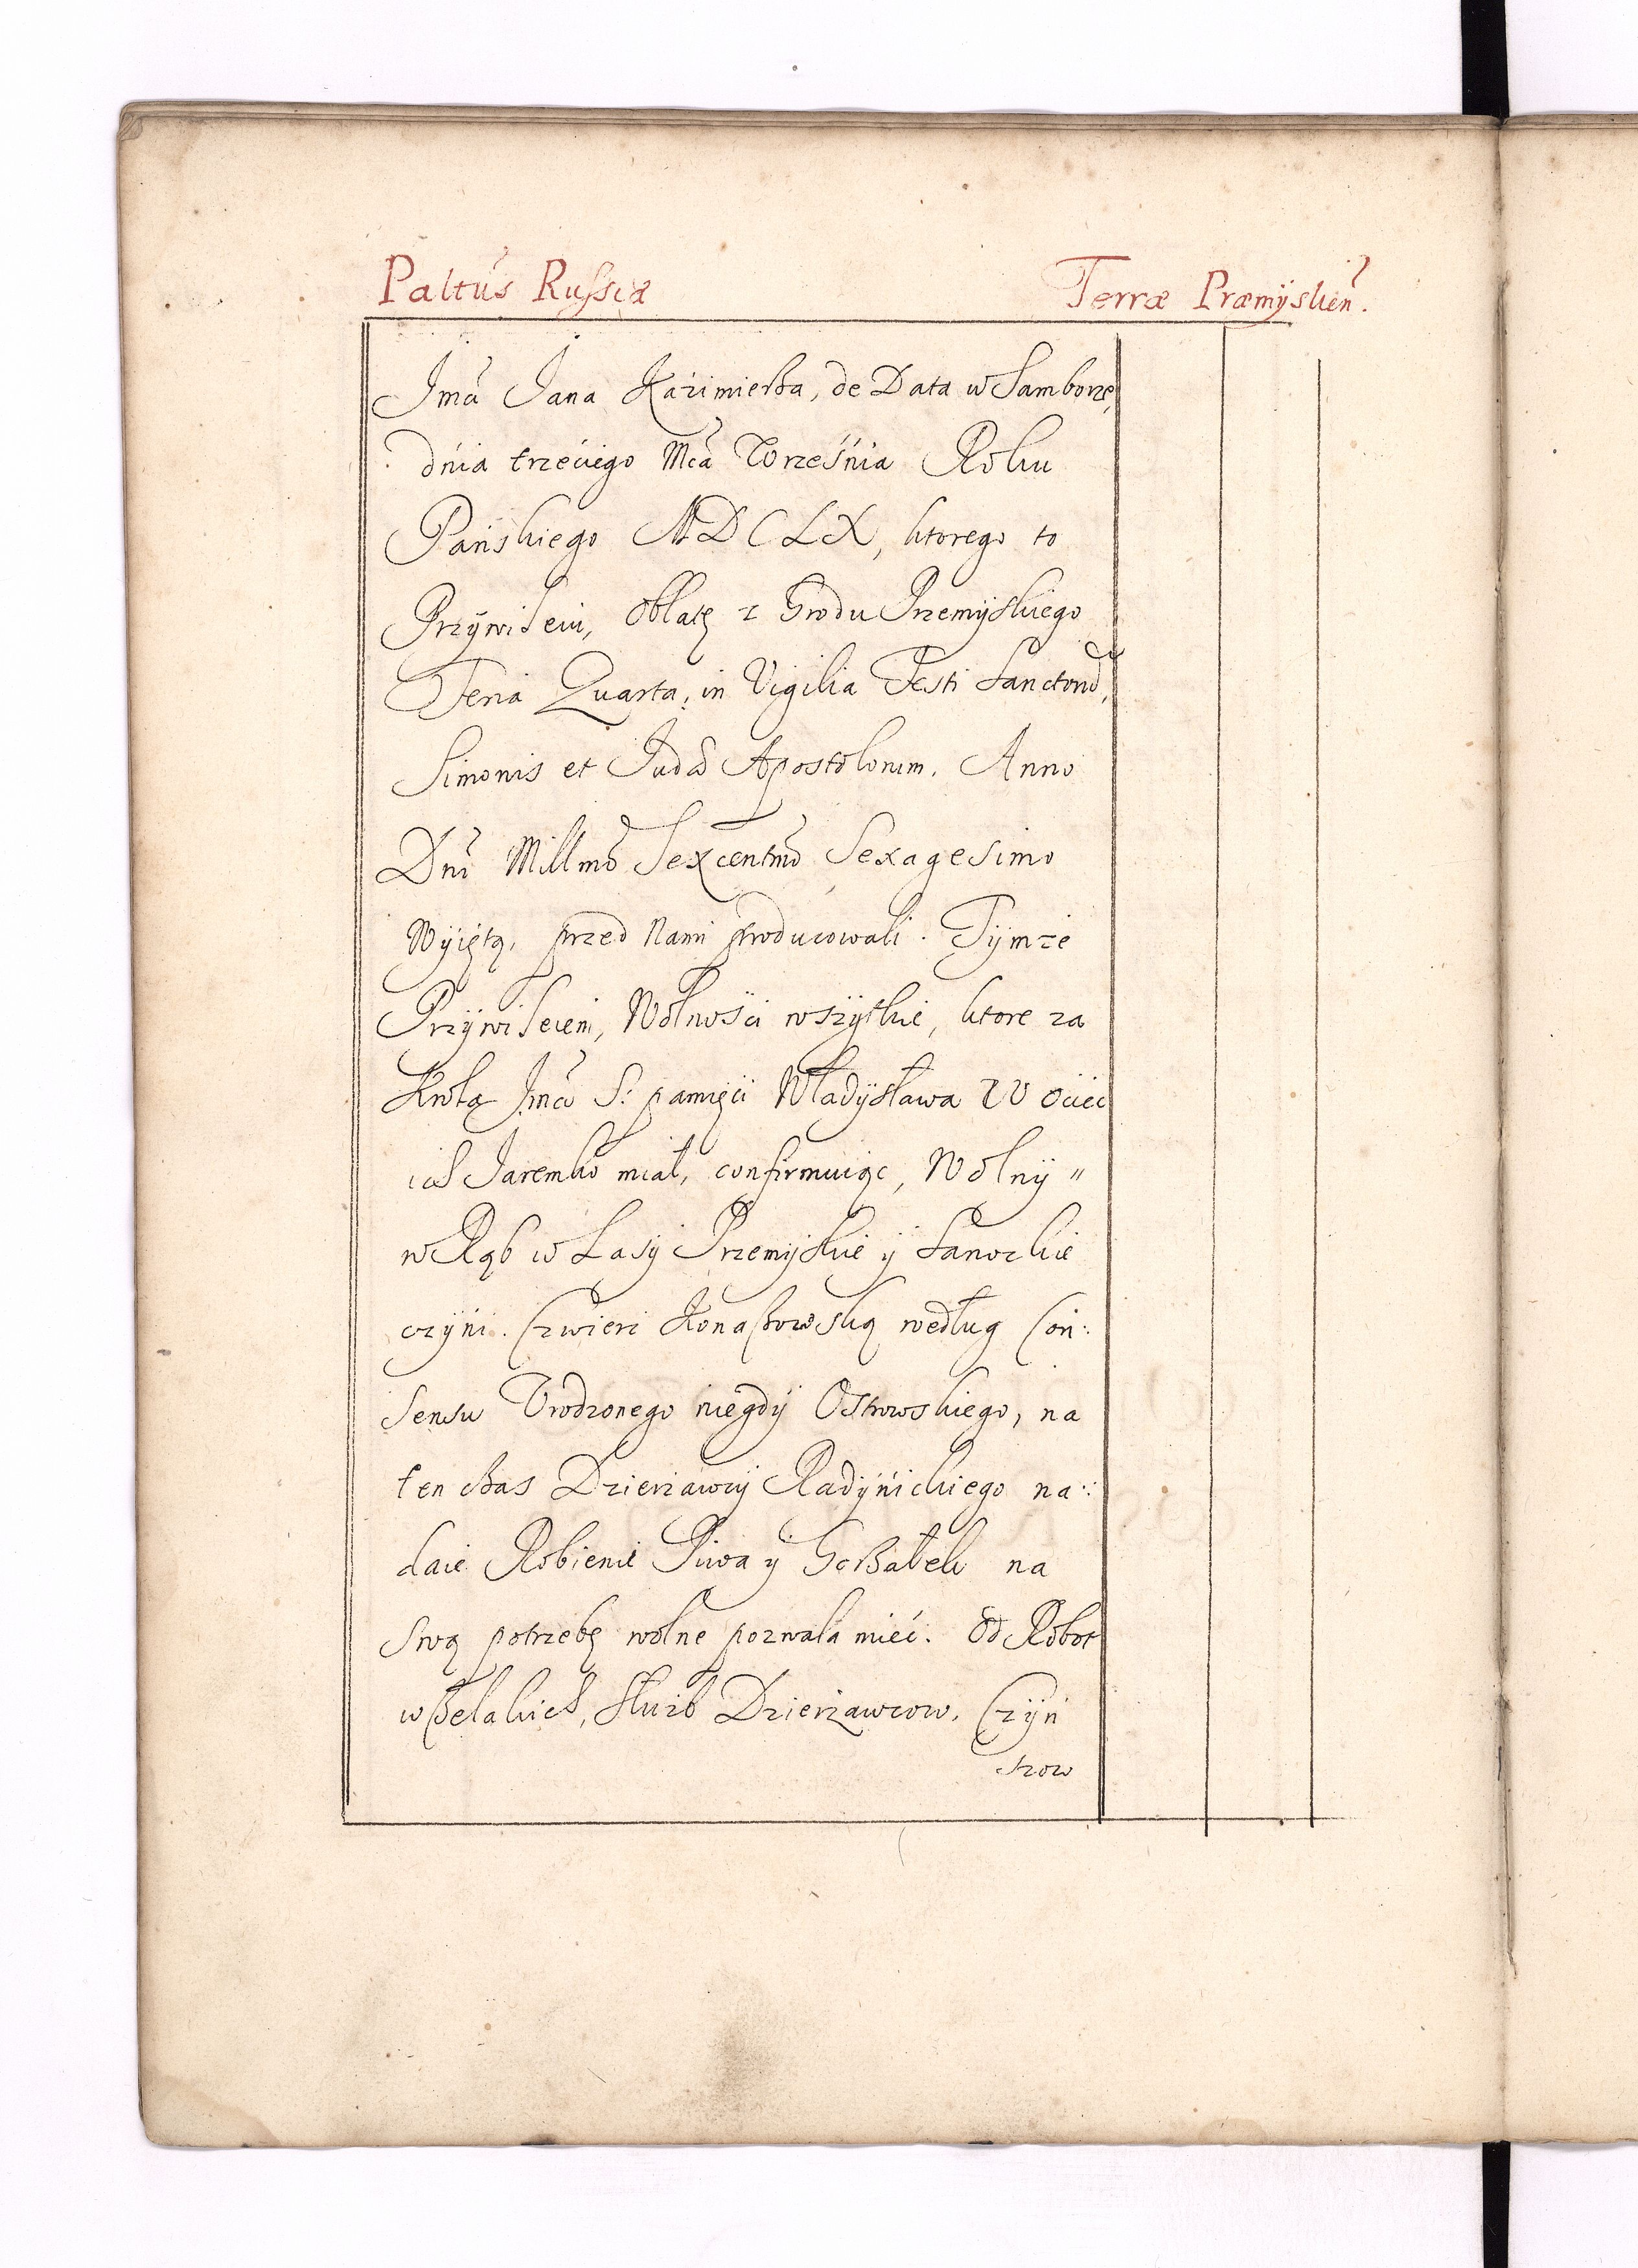 Paltūs Russiæ Terræ Præmÿslień.
Jmći Jana Kazimierza, de Data w Samborze,
dnia trzećiego Mca Wrześńia Roku
Pańskiego MDCLX, ktorego to
Przÿwileiu, Oblatę z Grodu Przemÿskiego
Feria Quarta, in Vigilia Festi Sanctorū,
Simonis et Judæ Apostolorum. Anno
Dni Millmō Sexcentmō Sexagesimo
Wÿiętą, przed Nami producowali. Tÿmże
Przÿwileiem, Wolnośći wszÿtkie, ktore za
Krola Jmći S: pamięći Władÿsława IV Oćiec
ich Jaremko miał, confirmuiąc, Wolnÿ "
wRąb w Lasÿ Przemÿskie ÿ Sanockie
czÿni. Czwierć Konaszowską według Con:
sensu Urodzonego niegdÿ Ostrowskiego, na
ten czas Dzierżawcÿ Radÿnickiego na:
daie. Robienie Piwa ÿ Gorzałek na
swą potrzebę wolne pozwala mieć. Od Robot
wszelakich, służb Dzierżawcow, Czÿn
szow